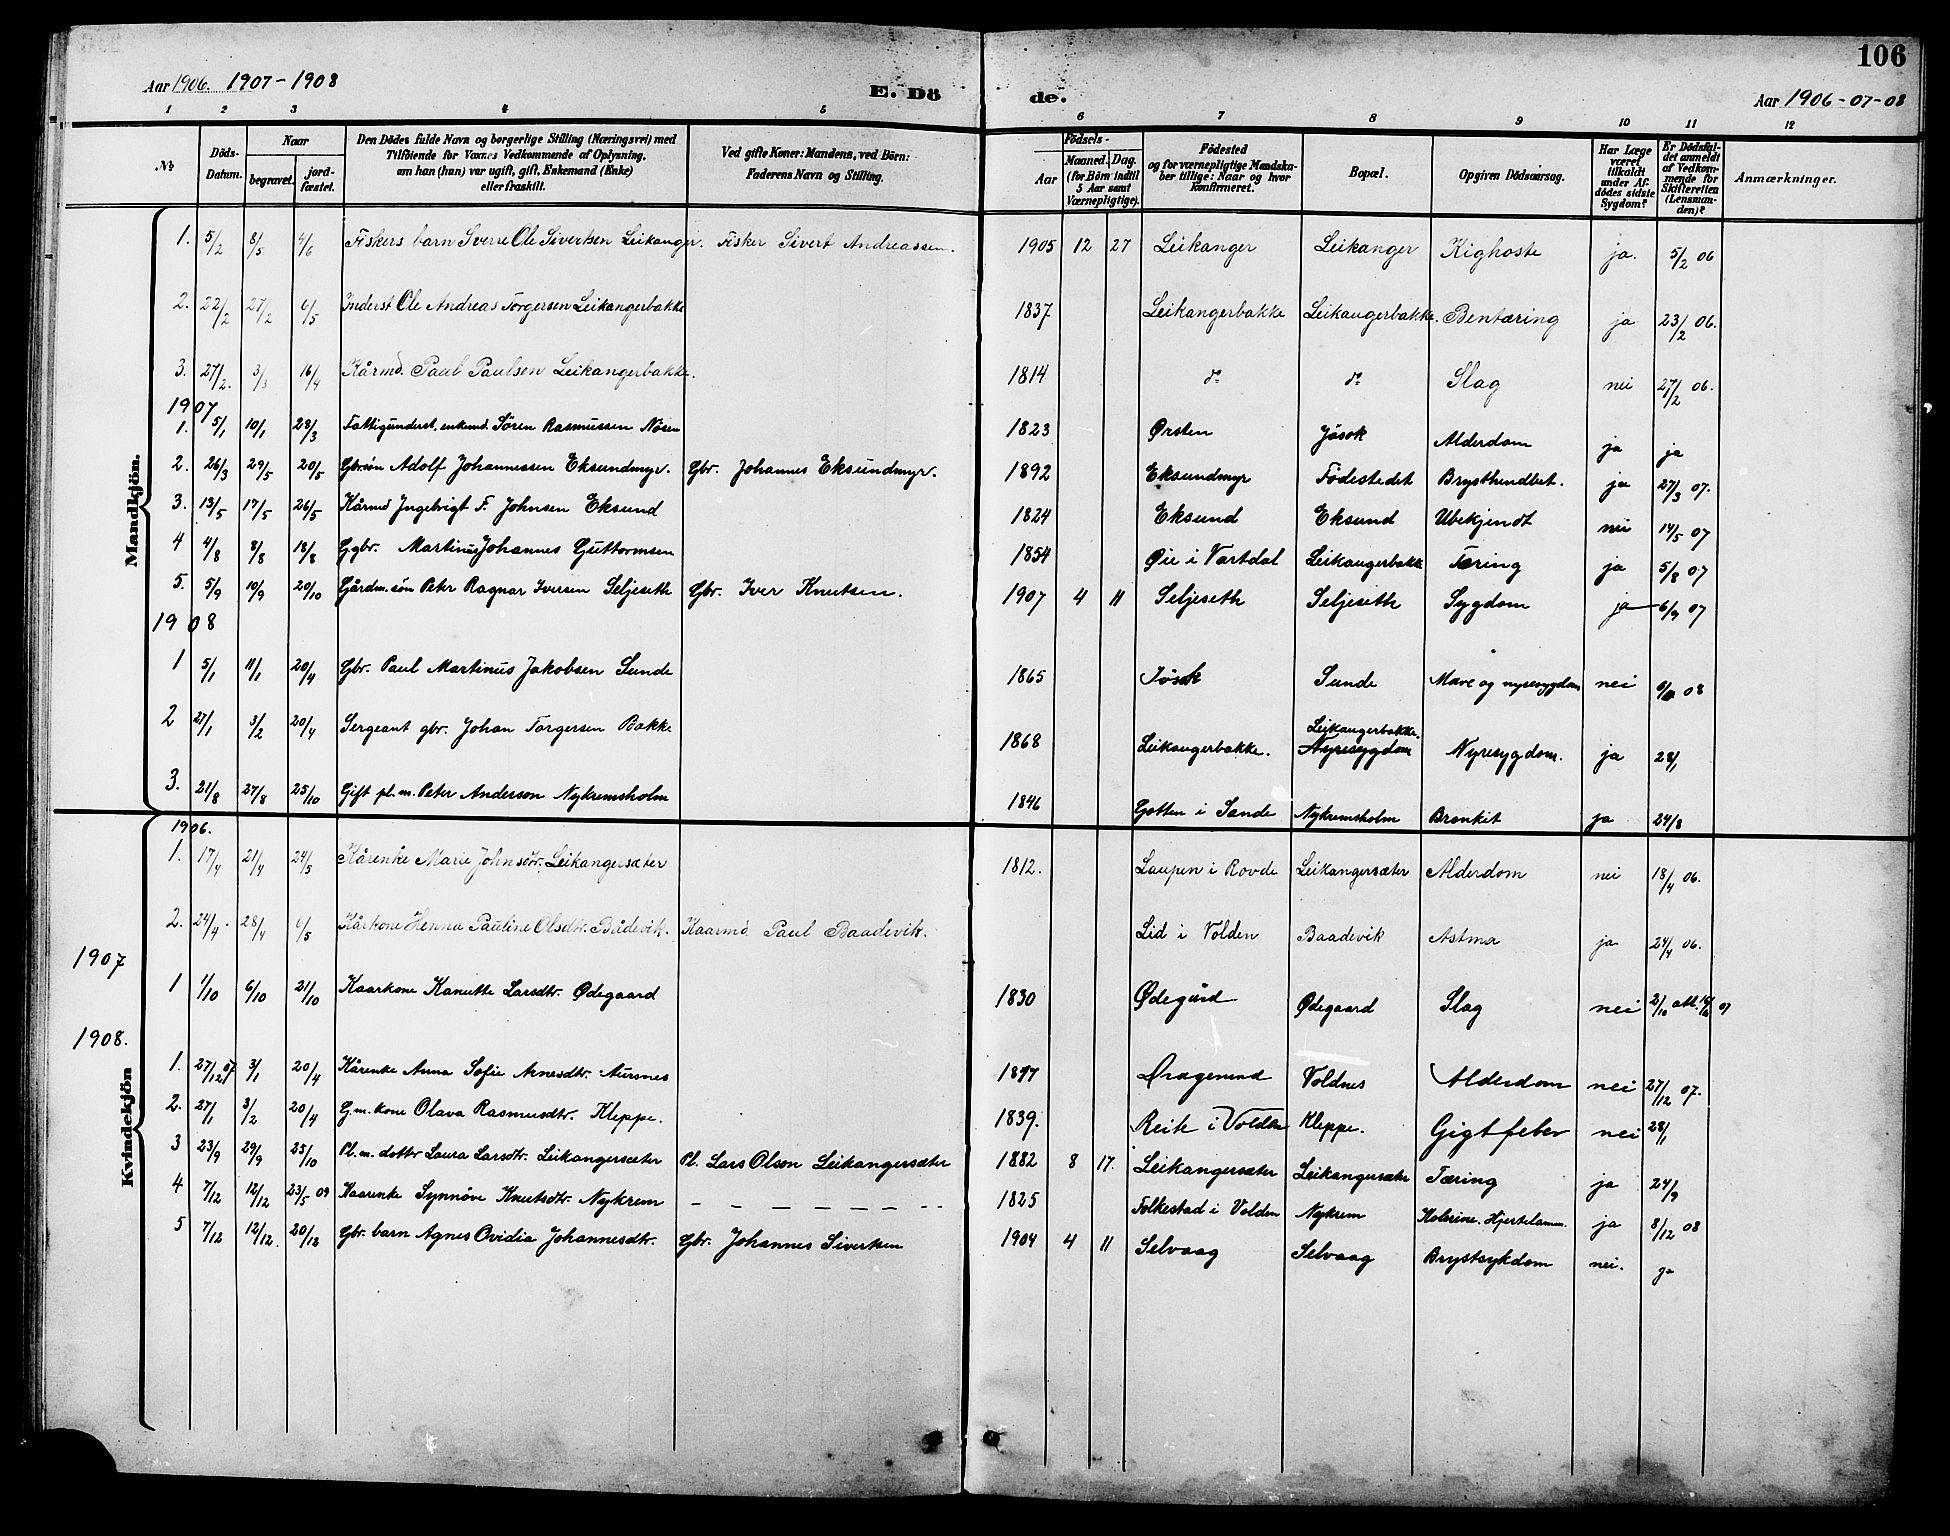 106
Aar 1906. 1907-1908
E. Dö
de.
Aar 1906-07-08
1 2 3 4 5 6 7 8 9 10 11 12
№
Döds-Datum.
Naar
begravet.
jord-fæstet.
Den Dödes fulde Navn og borgerlige Stilling (Næringsvei) med
Tilföiende for Voxnes Vedkommende af Oplysning,
om han (hun) var ugift, gift, Enkemand (Enke)
eller fraskilt.
Ved gifte Koner: Mandens, ved Börn:
Faderens Navn og Stilling.
Födsels-
Aar
Maaned. Dag.
(for Börn indtil
5 Aar samt
Værnepligtige).
Födested
og for værnepligtige Mandska-
ber tillige: Naar og hvor
konfirmeret.
Bopæl.
Opgiven Dödsaarsag.
Har Læge
været
tilkaldt
under Af-
dödes sidste
Sygdom?
Er Dödsfal-
det anmeldt
af Vedkom-
mende for
Skifteretten
(Lensman-
den)?
Anmærkninger.
Mandkjön.
1. 5/2 8/5 4/6 Fiskers barn Sverre Ole Sivertsen Leikanger. Fisker Sivert Andreassen. 1905 12 27 Leikanger Leikanger Kighoste ja. 5/2 06
2. 22/2 27/2 6/5 Inderst Ole Andreas Torgersen Leikangerbakke 1837 Leikangerbakke Leikangerbakke. Bentæring ja 23/2 06.
3. 27/2. 3/3 16/4 Kårmd. Paul Paulsen Leikangerbakke. 1814 do do Slag nei 27/2 06.
1907
1. 5/1 10/1 28/3 Fattigunderst. enkemd. Sören Rasmussen Nösen 1823 Ørsten Jösok Alderdom ja ja
2. 26/3 29/5 20/5 Gbrsön Adolf Johannessen Eksundmyr. Gbr. Johannes Eksundmyr. 1892 Eksundmyr Födestedet ja 27/3 07.
3. 13/5 17/5 26/5 Kårmd Ingebrigt F. Johnsen Eksund 1824 Eksund Eksund Ubekjendt nei 14/5 07
4 4/8 8/8 18/8 Ggbr. Martinus Johannes Guttormsen 1854 Øie i Vartdal Leikangerbakke Tæring ja 5/8 07
5. 5/9 10/9 20/10 Gårdm. sön Peter Ragnar Iversen Seljeseth Gbr. Iver Knutsen. 1907 4 11 Seljeseth Seljeseth Sygdom ja 6/9 07
1908
1 5/1 11/1 20/4 Gbr. Paul Martinus Jakobsen Sunde 1865 Jösok Sunde Mave og nyresygdom nei 08
2 27/1 3/2 20/4 Sergeant gbr. Johan Torgersen Bakke 1868 Leikangerbakke. Leikangerbakke. Nyresygdom Nyresygdom. ja 28/1
3. 21/8 27/8 25/10 Gift pl. m. Peter Anderson Nykremsholm 1846 Gotten i Sande Nykremsholm Bronkit ja 24/8
Kvindekjön
1906.
1. 17/4 21/4 24/5 Kårenke Marie Johnsdtr. Leikangersæter 1812. Laupen i Rovde Leikangersæter Alderdom nei 18/4 06.
2. 24/4. 28/4 6/5 Kårkone Henna Pauline Olsdtr. Bådevik. Kaarmd Paul Baadevik. Lid i Volden Baadevik Astma ja 24/4 06.
1907
1 1/10 6/10 21/10 Kaarkone Kanutte Larsdtr. Ødegaard 1830 Ødegård Ødegaard Slag nei 2/10 07
1908.
1. 27/12 07 3/1 20/4 Kårenke Anna Sofie Arnesdtr. Aursnes Dragesund Voldnes Alderdom nei 27/12 07.
2. 27/1 3/2 20/4 G.m. kone Olava Rasmusdtr. Kleppe. 1839. Reik i Volden Kleppe. Gigtfeber nei 28/1
3 23/9 29/9 25/10 Pl. m. dottr Laura Larsdtr. Leikangersæter Pl. Lars Olson Leikangersæter 1882 8 17. Leikangersæter Leikangersæter Tæring ja 24/9
4 7/12 12/12 23/5 09 Kaarenke Synnöve Knutsdtr. Nykrem 1825 Folkestad i Volden Nykrem Kolerine. Hjertelamm. ja 8/12 08
5 7/12 12/12. 20/12 Gbr. barn Agnes Ovidia Johannesdtr. Gbr. Johannes Sivertsen 1904 4 11 Selvaag Selvaag Brystsykdom nei. ja